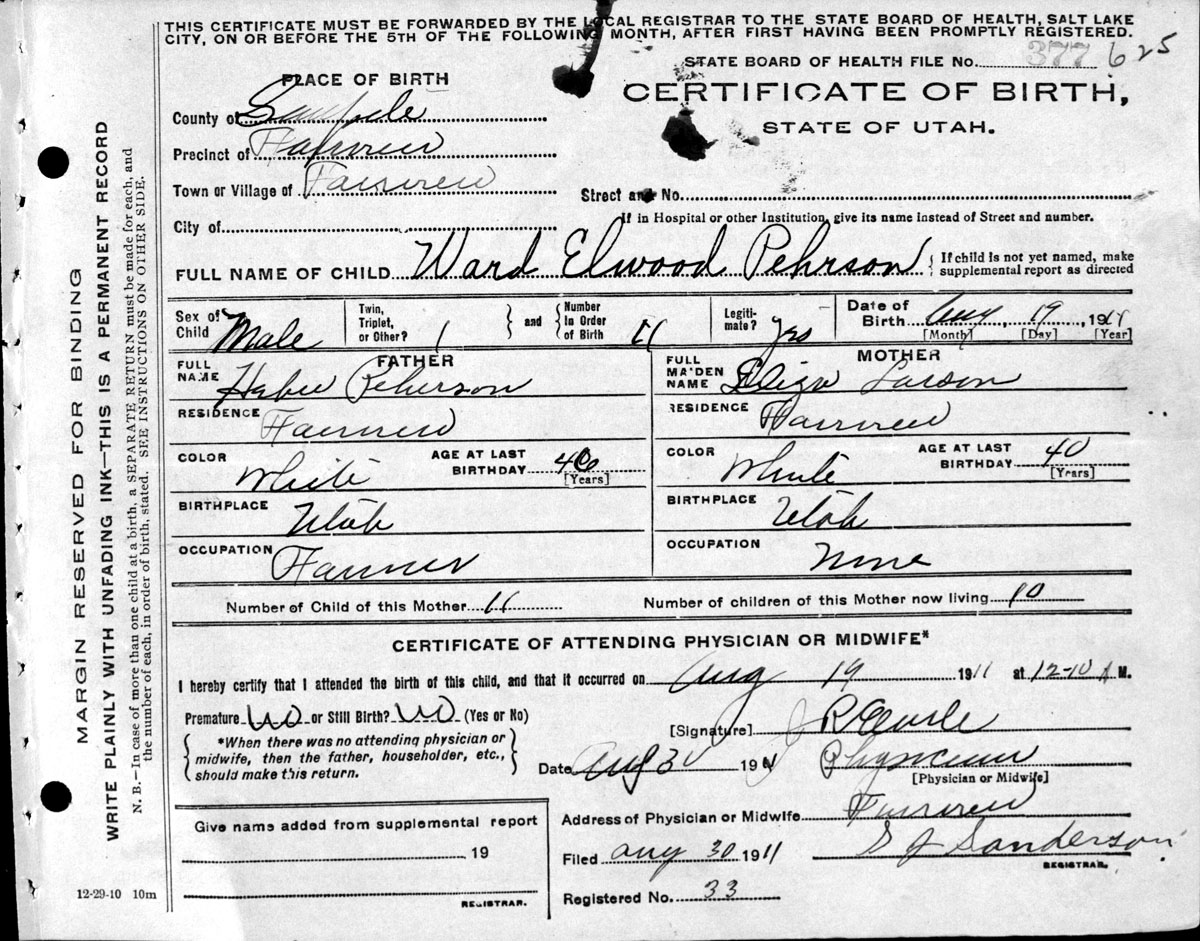 THIS CERTIFICATE MUST BE FORWARDED BY THE LOCAL REGISTRAR TO THE STATE BOARD OF HEALTH, SALT LAKE
CITY, ON OR BEFORE THE 5TH OF THE FOLLOWING MONTH, AFTER FIRST HAVING BEEN PROMPTLY REGISTERED.
STATE BOARD OF HEALTH FILE No. 377 625
PLACE OF BIRTH
CERTIFICATE OF BIRTH,
STATE OF UTAH.
County of Sanpete
Precinct of Fairview
Town or Village of Fairview
Street and No.
If in Hospital or other Institution, give its name instead of Street and number.
City of
FULL NAME OF CHILD Ward Elwood Pehrson { If child is not yet named, make supplemental report as directed
Sex of Child Male Twin, Triplet, or Other? 1 } and { Number In Order of Birth 11 Legitimate? yes Date of Birth Aug, 19, 1911
[Month] [Day] [Year]
FATHER
FULL NAME Pehrson
RESIDENCE Fairview
COLOR White AGE AT LAST BIRTHDAY [Years]
BIRTHPLACE Utah
OCCUPATION Farmer
MOTHER
FULL MAIDEN NAME Eliza Larson
RESIDENCE Fairview
COLOR White AGE AT LAST BIRTHDAY 40 [Years]
BIRTHPLACE Utah
OCCUPATION None
Number of Child of this Mother 11 Number of children of this Mother now living 10
CERTIFICATE OF ATTENDING PHYSICIAN OR MIDWIFE*
I hereby certify that I attended the birth of this child, and that it occurred on Aug 19 1911 at 12-10 A M.
Premature No or Still Birth? No (Yes or No)
[Signature]
*When there was no attending physician or
midwife, then the father, householder, etc.,
should make this return.
Date Aug 30 1911 Physician
[Physician or Midwife]
Address of Physician or Midwife Fairview
Filed Aug 30 1911 S J Sanderson
REGISTRAR.
Registered No. 33
Give name added from supplemental report
19
REGISTRAR.
12-29-10 10m
MARGIN RESERVED FOR BINDING
WRITE PLAINLY WITH UNFADING INK—THIS IS A PERMANENT RECORD
N. B.—In case of more than one child at a birth, a SEPARATE RETURN must be made for each, and
the number of each, in order of birth, stated. SEE INSTRUCTIONS ON OTHER SIDE.